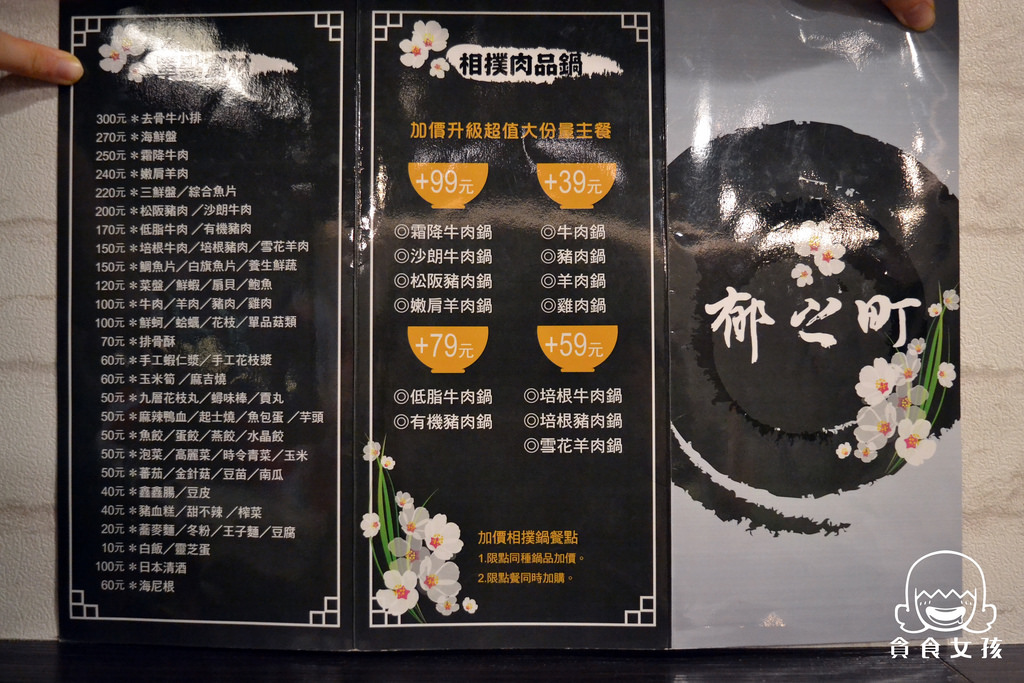 300元＊去骨牛小排
270元＊海鮮盤
250元＊霜降牛肉
240元＊嫩肩羊肉
220元＊三鮮盤／綜合魚片
200元＊松阪豬肉／沙朗牛肉
170元＊低脂牛肉／有機豬肉
150元＊培根牛肉／培根豬肉／雪花羊肉
150元＊鯛魚片／白旗魚片／養生鮮蔬
120元＊菜盤／鮮蝦／扇貝／鮑魚
100元＊牛肉／羊肉／豬肉／雞肉
100元＊鮮蚵／蛤蠣／花枝／單品菇類
70元＊排骨酥
60元＊手工蝦仁漿／手工花枝漿
60元＊玉米筍／麻吉燒
50元＊九層花枝丸／蟳味棒／貢丸
50元＊麻辣鴨血／起士燒／魚包蛋／芋頭
50元＊魚餃／蛋餃／燕餃／水晶餃
50元＊泡菜／高麗菜／時令青菜／玉米
50元＊蕃茄／金針菇／豆苗／南瓜
40元＊鑫鑫腸／豆皮
40元＊豬血糕／甜不辣／榨菜
20元＊蕎麥麵／冬粉／王子麵／豆腐
10元＊白飯／靈芝蛋
100元＊日本清酒
60元＊海尼根
相撲肉品鍋
加價升級超值大份量主餐
+99元
◎霜降牛肉鍋
◎沙朗牛肉鍋
◎松阪豬肉鍋
◎嫩肩羊肉鍋
+39元
◎牛肉鍋
◎豬肉鍋
◎羊肉鍋
◎雞肉鍋
+79元
◎低脂牛肉鍋
◎有機豬肉鍋
+59元
◎培根牛肉鍋
◎培根豬肉鍋
◎雪花羊肉鍋
加價相撲鍋餐點
1.限點同種鍋品加價。
2.限點餐同時加購。
郁之町
貪食女孩